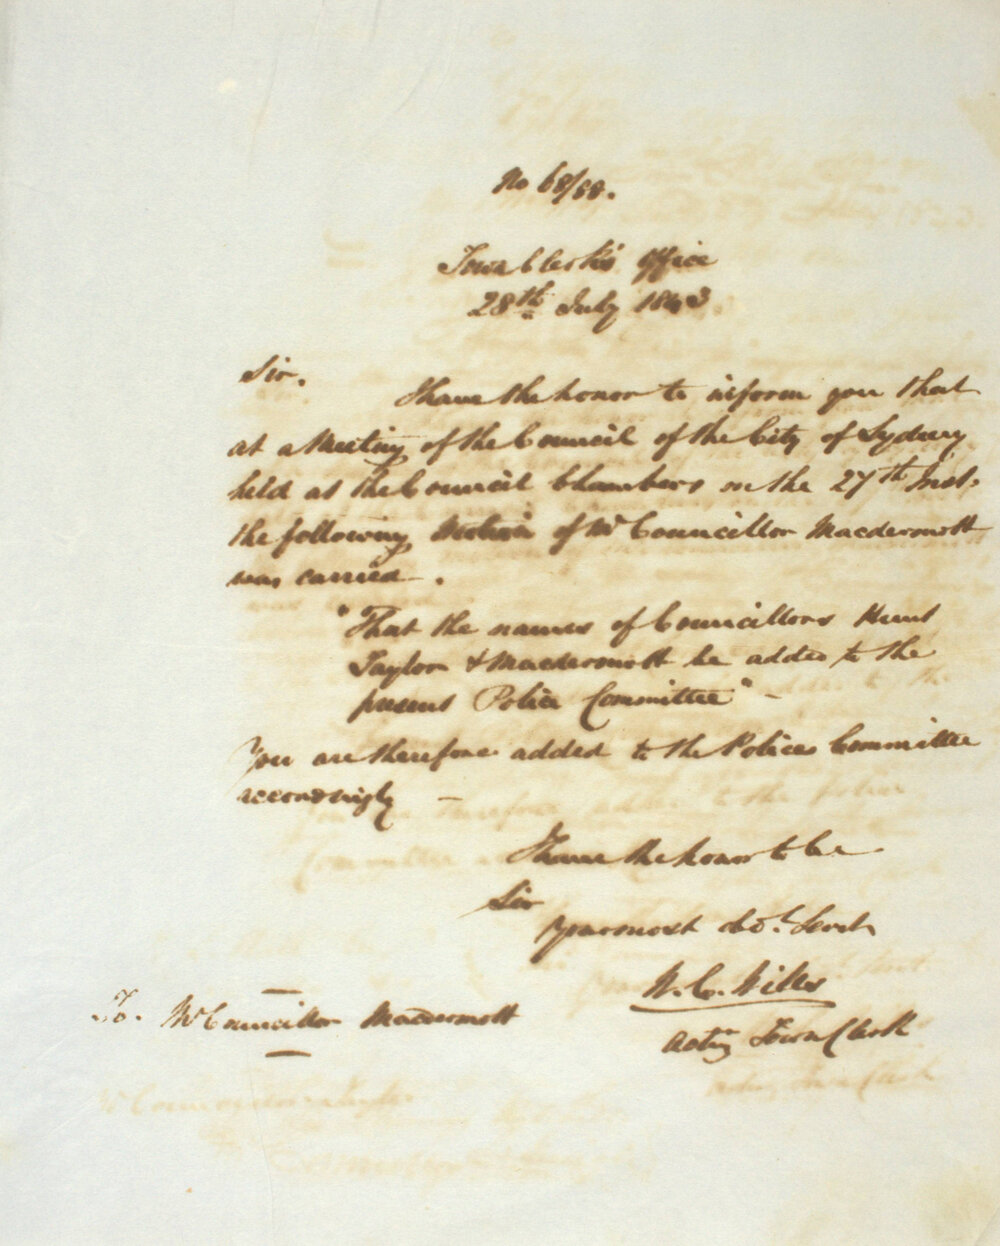 No 68/88.
Town Clerk's Office
28th July 1843
Sir.
I have the honor to inform you that
at a Meeting of the Council of the City of Sydney
held at the Council Chambers on the 27th Inst.
the following Motion of Mr Councillor Macdermott
was carried.
"That the names of Councillors Hunt
Taylor & Macdermott be added to the
present Police Committee" -
You are therefore added to the Police Committee
accordingly -
I have the honor to be
Sir
Your most obdt. Servt.
W. C. Wills
Acting Town Clerk
To. Mr Councillor Macdermott